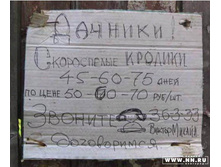 ДАЧНИКИ!
СКОРОСПЕЛЫЕ КРОЛИКИ
45-60-75 ДНЕЙ
ПО ЦЕНЕ 50-60-70 РУБ/ШТ.
ЗВОНИТЕ 3-63-33
Договоримся
WWW.NN.RU